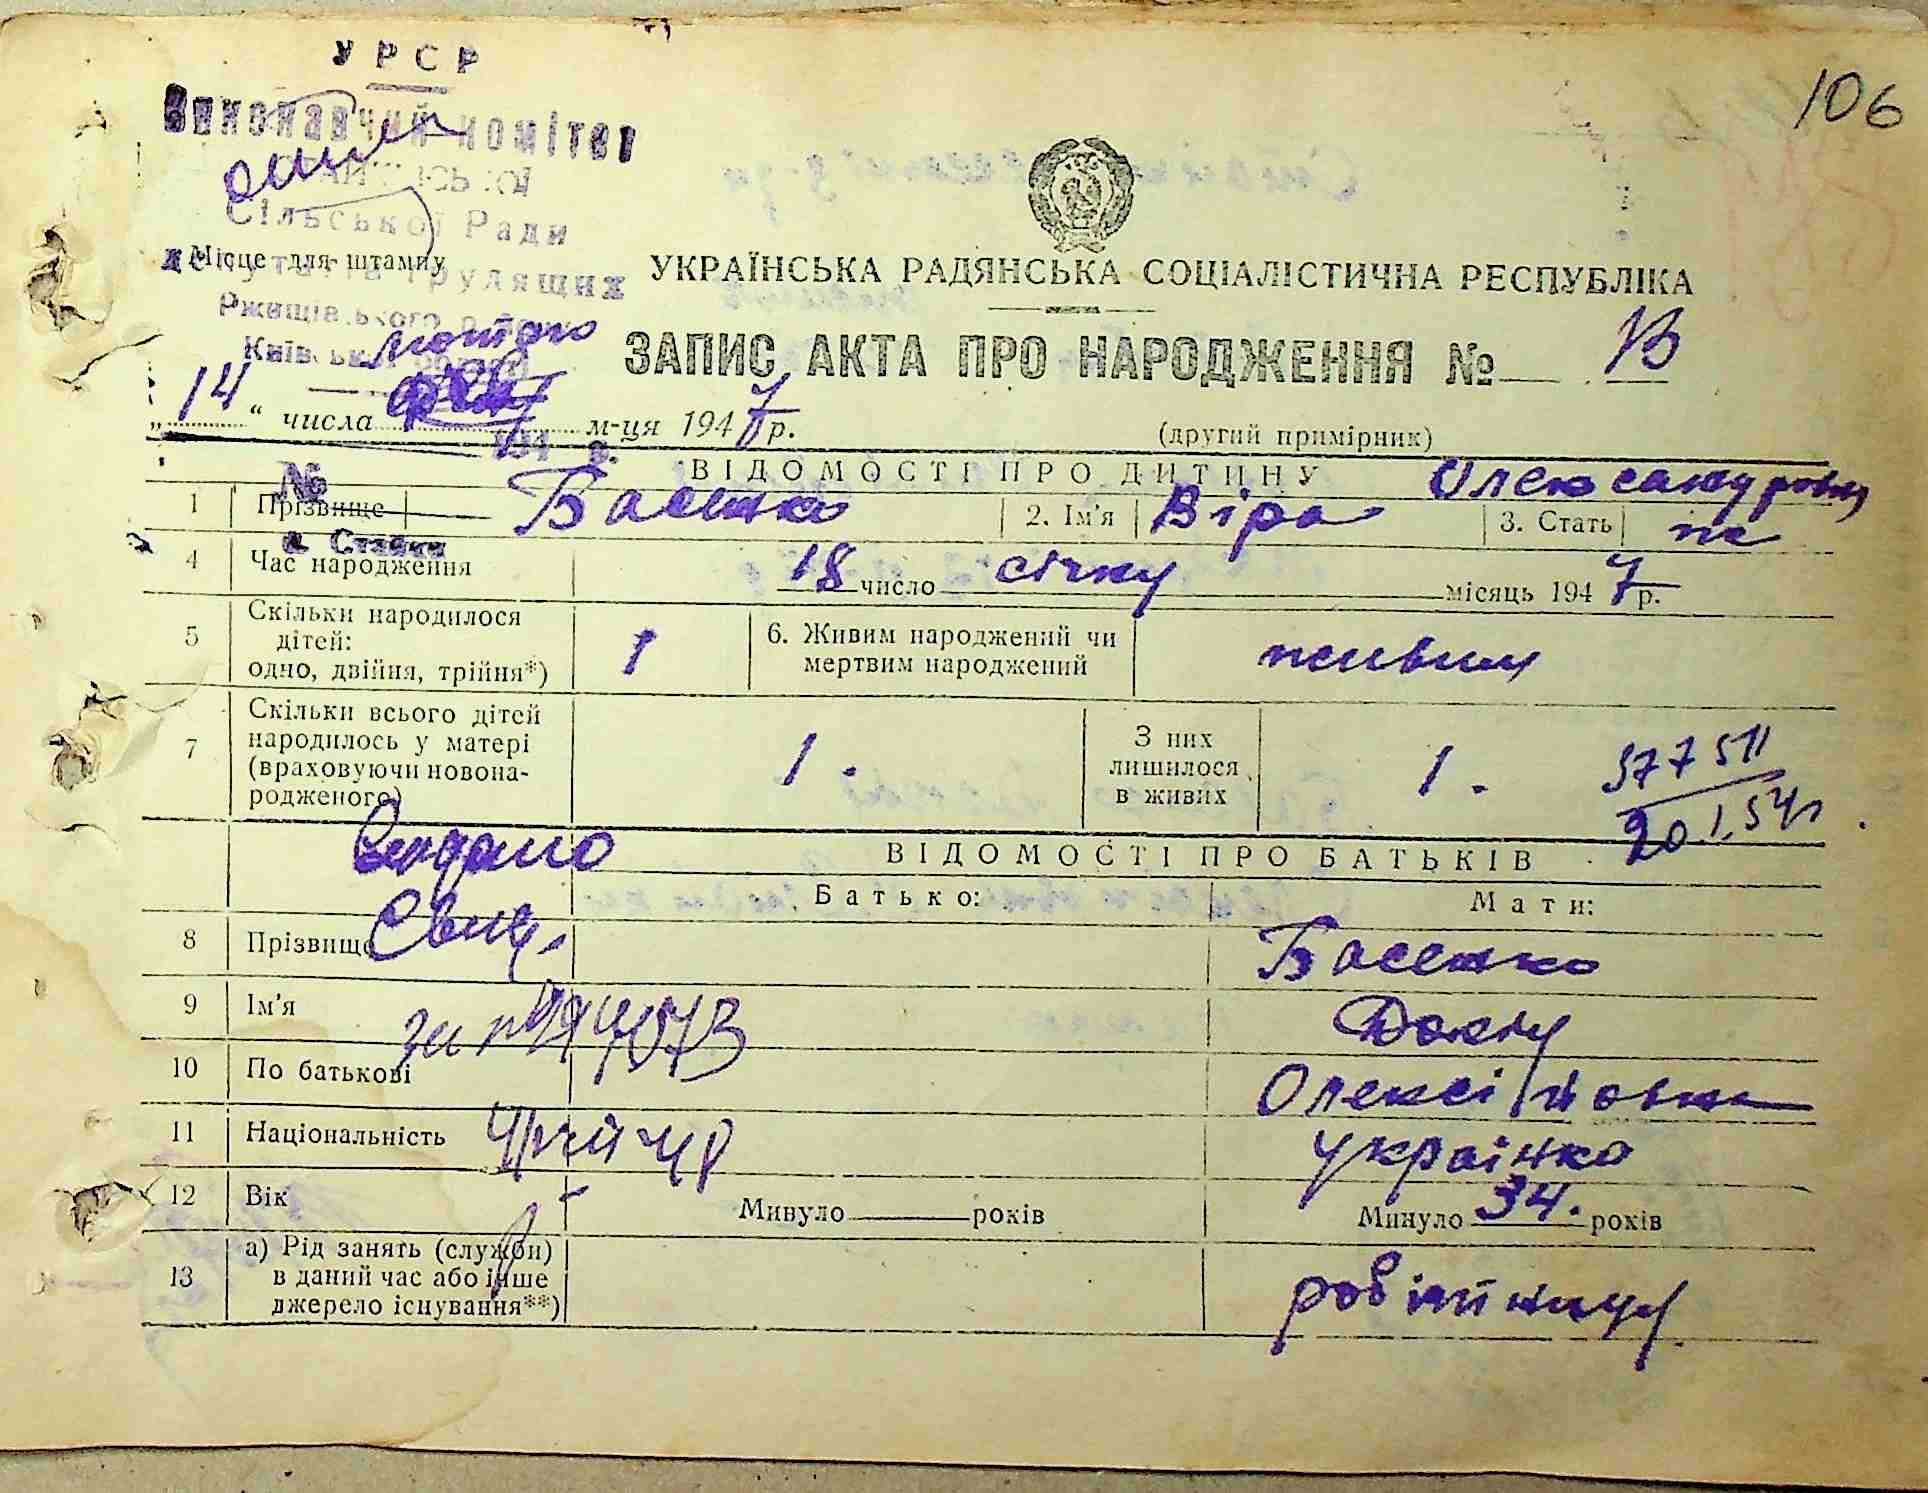 106
УРСР
Виконавчий комітет
Сільської Ради
Місце для штампу
депутатів трудящих
УКРАЇНСЬКА РАДЯНСЬКА СОЦІАЛІСТИЧНА РЕСПУБЛІКА
ЗАПИС АКТА ПРО НАРОДЖЕННЯ № 13
лютого
„ 14 “ числа м-ця 1947 р.
(другий примірник)
194 р.
ВІДОМОСТІ ПРО ДИТИНУ
№
1 Прізвище Басенко 2. Ім'я Віра Олександровна 3. Стать ж
с. Стайки
4 Час народження 18 число січня місяць 1947 р.
5 Скільки народилося дітей:
одно, двійня, трійня*) 1 6. Живим народжений чи
мертвим народжений живим
7 Скільки всього дітей
народилось у матері
(враховуючи новона-
родженого) 1. З них
лишилося
в живих 1.
20.1.54р
Видано
ВІДОМОСТІ ПРО БАТЬКІВ
Батько: Мати:
8 Прізвище Басенко
9 Ім'я
10 По батькові Олексіївна
11 Національність українка
12 Вік Минуло років Минуло 34. років
13 а) Рід занять (служби)
в даний час або інше
джерело існування**) робітниця